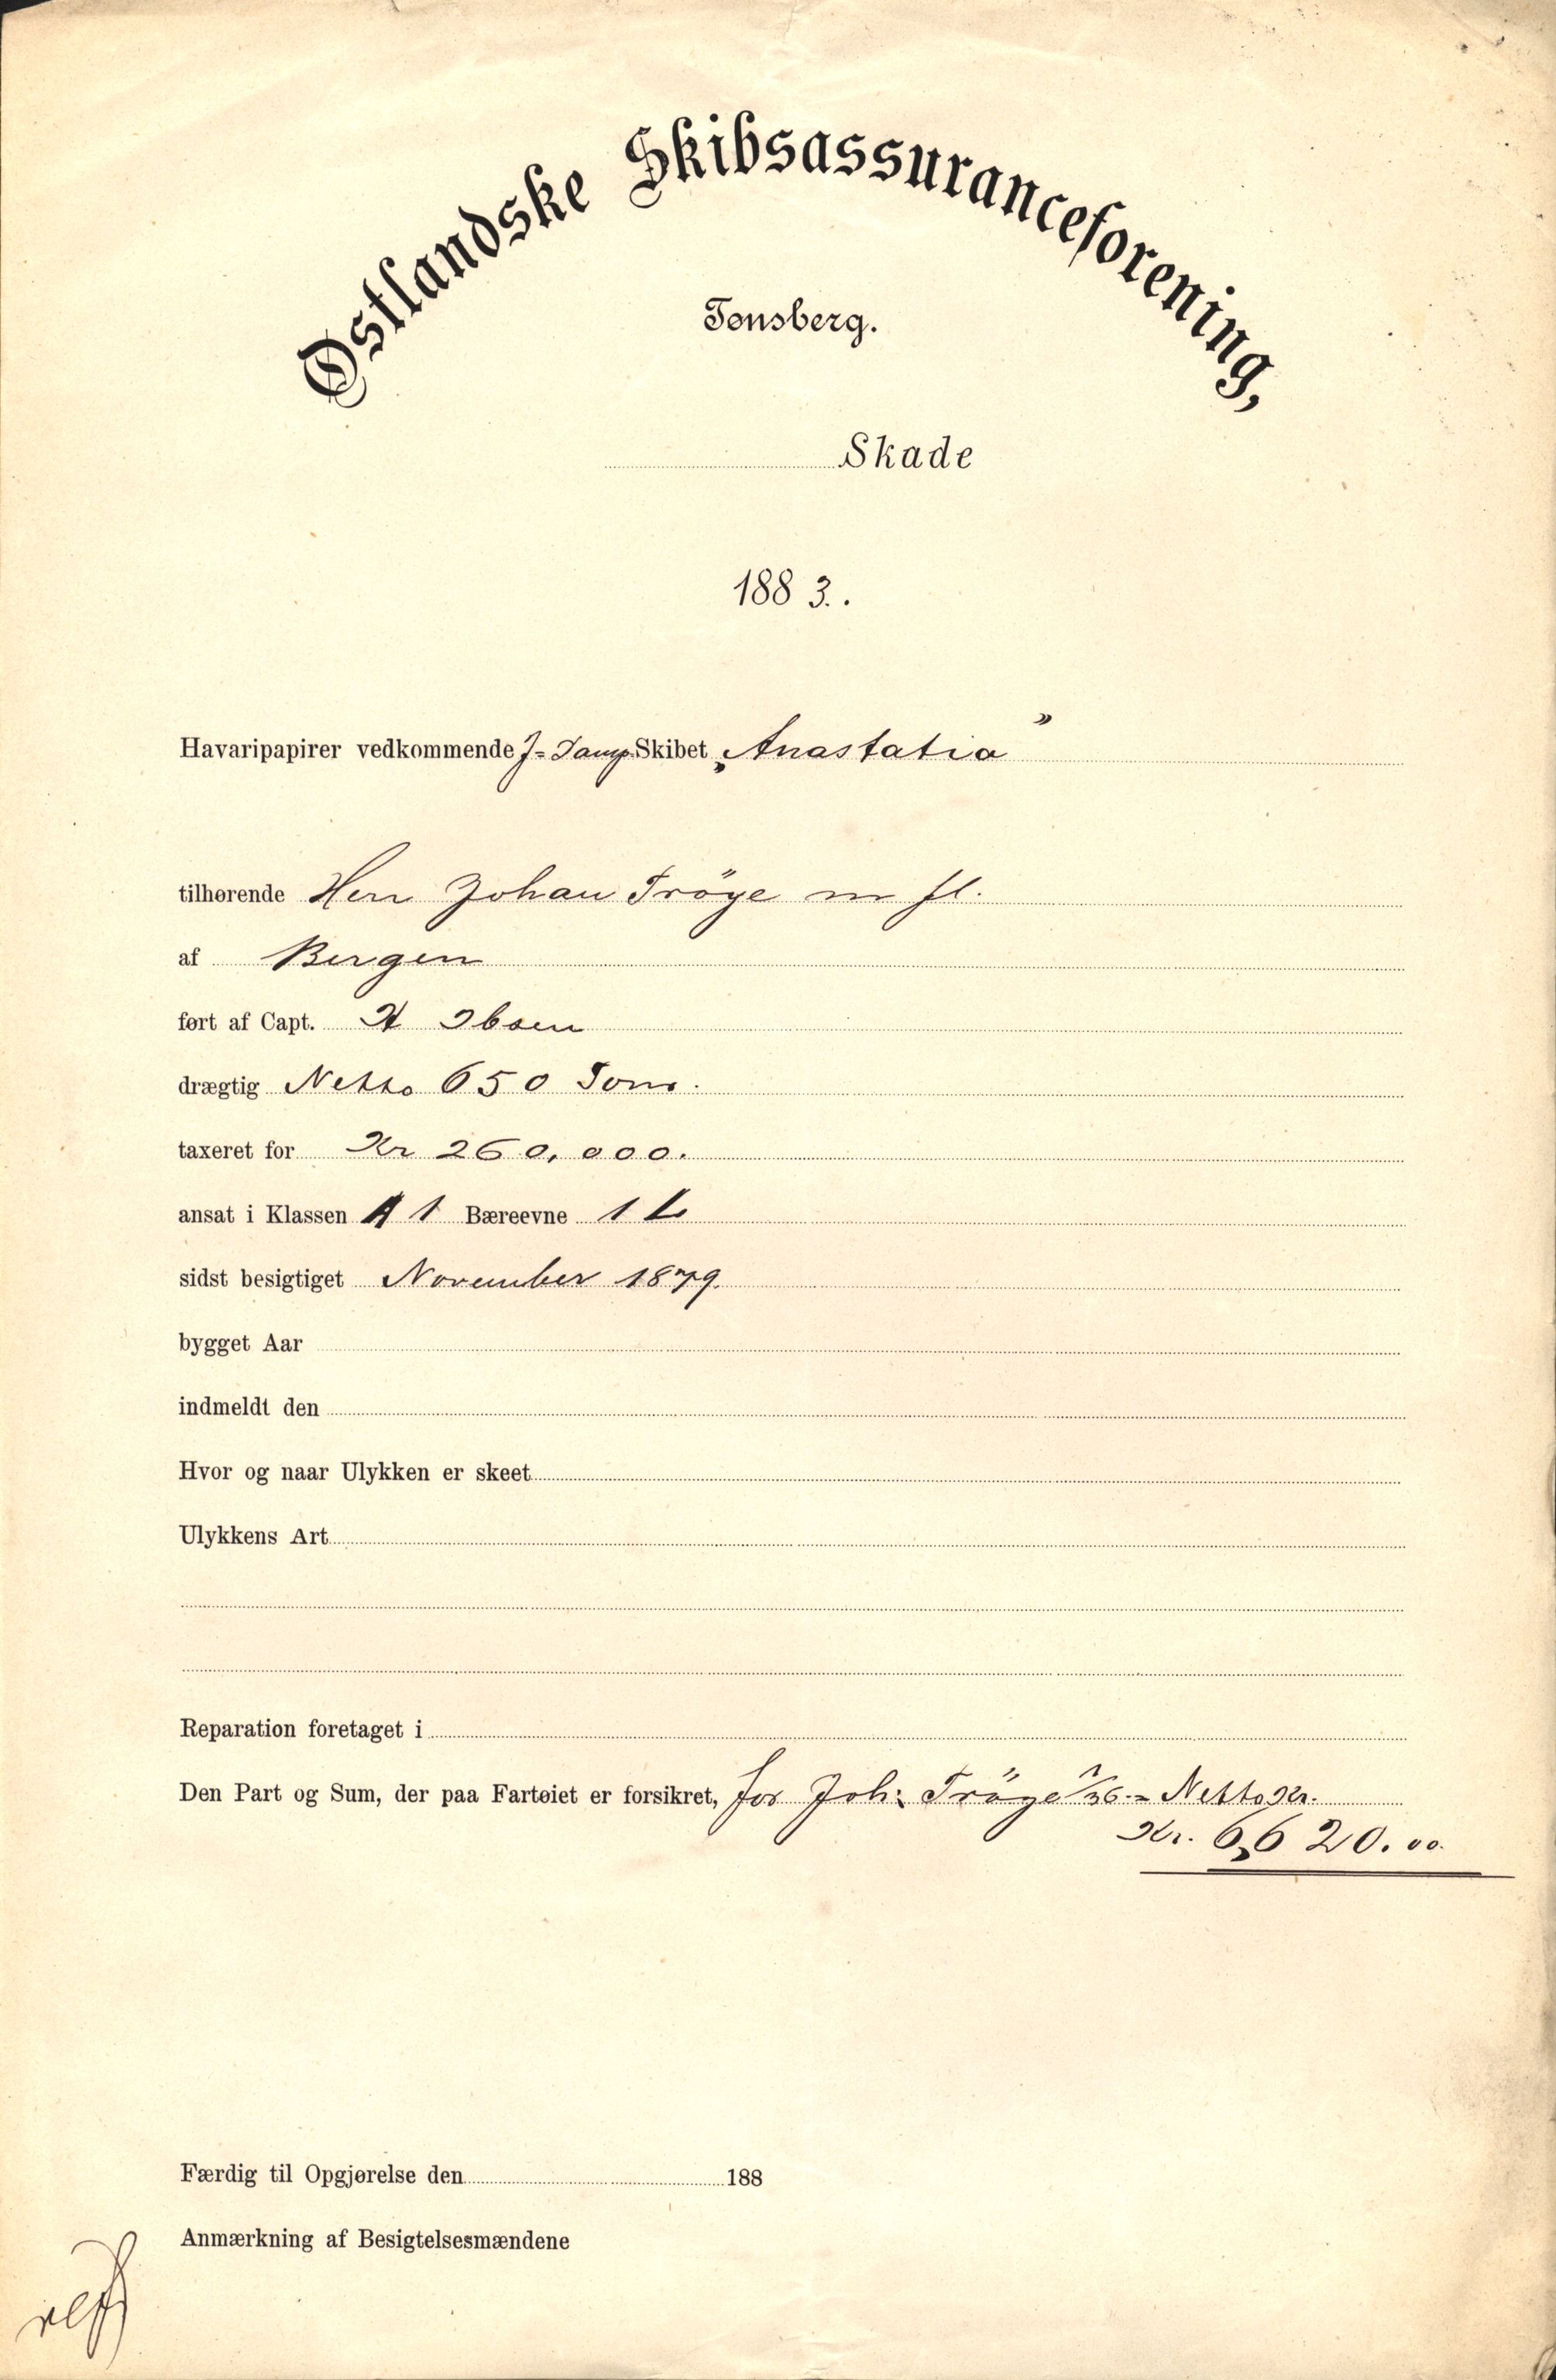 Østlandske Skibsassuranceforening,
Tønsberg.
Skade
1883.
Havaripapirer vedkommende J-Damp Skibet „Anastatia”
tilhørende Herr Johan Tröye m fl.
af Bergen
ført af Capt. H Ibsen
drægtig Netto 650 Tons.
taxeret for Kr 260,000.
ansat i Klassen A 1 Bæreevne 1 L
sidst besigtiget November 1879.
bygget Aar
indmeldt den
Hvor og naar Ulykken er skeet
Ulykkens Art
Reparation foretaget i
Den Part og Sum, der paa Fartøiet er forsikret, for Joh: Tröye 1/36 - Netto Kr.
Kr. 6,620.00.
Færdig til Opgjørelse den 188
Anmærkning af Besigtelsesmændene